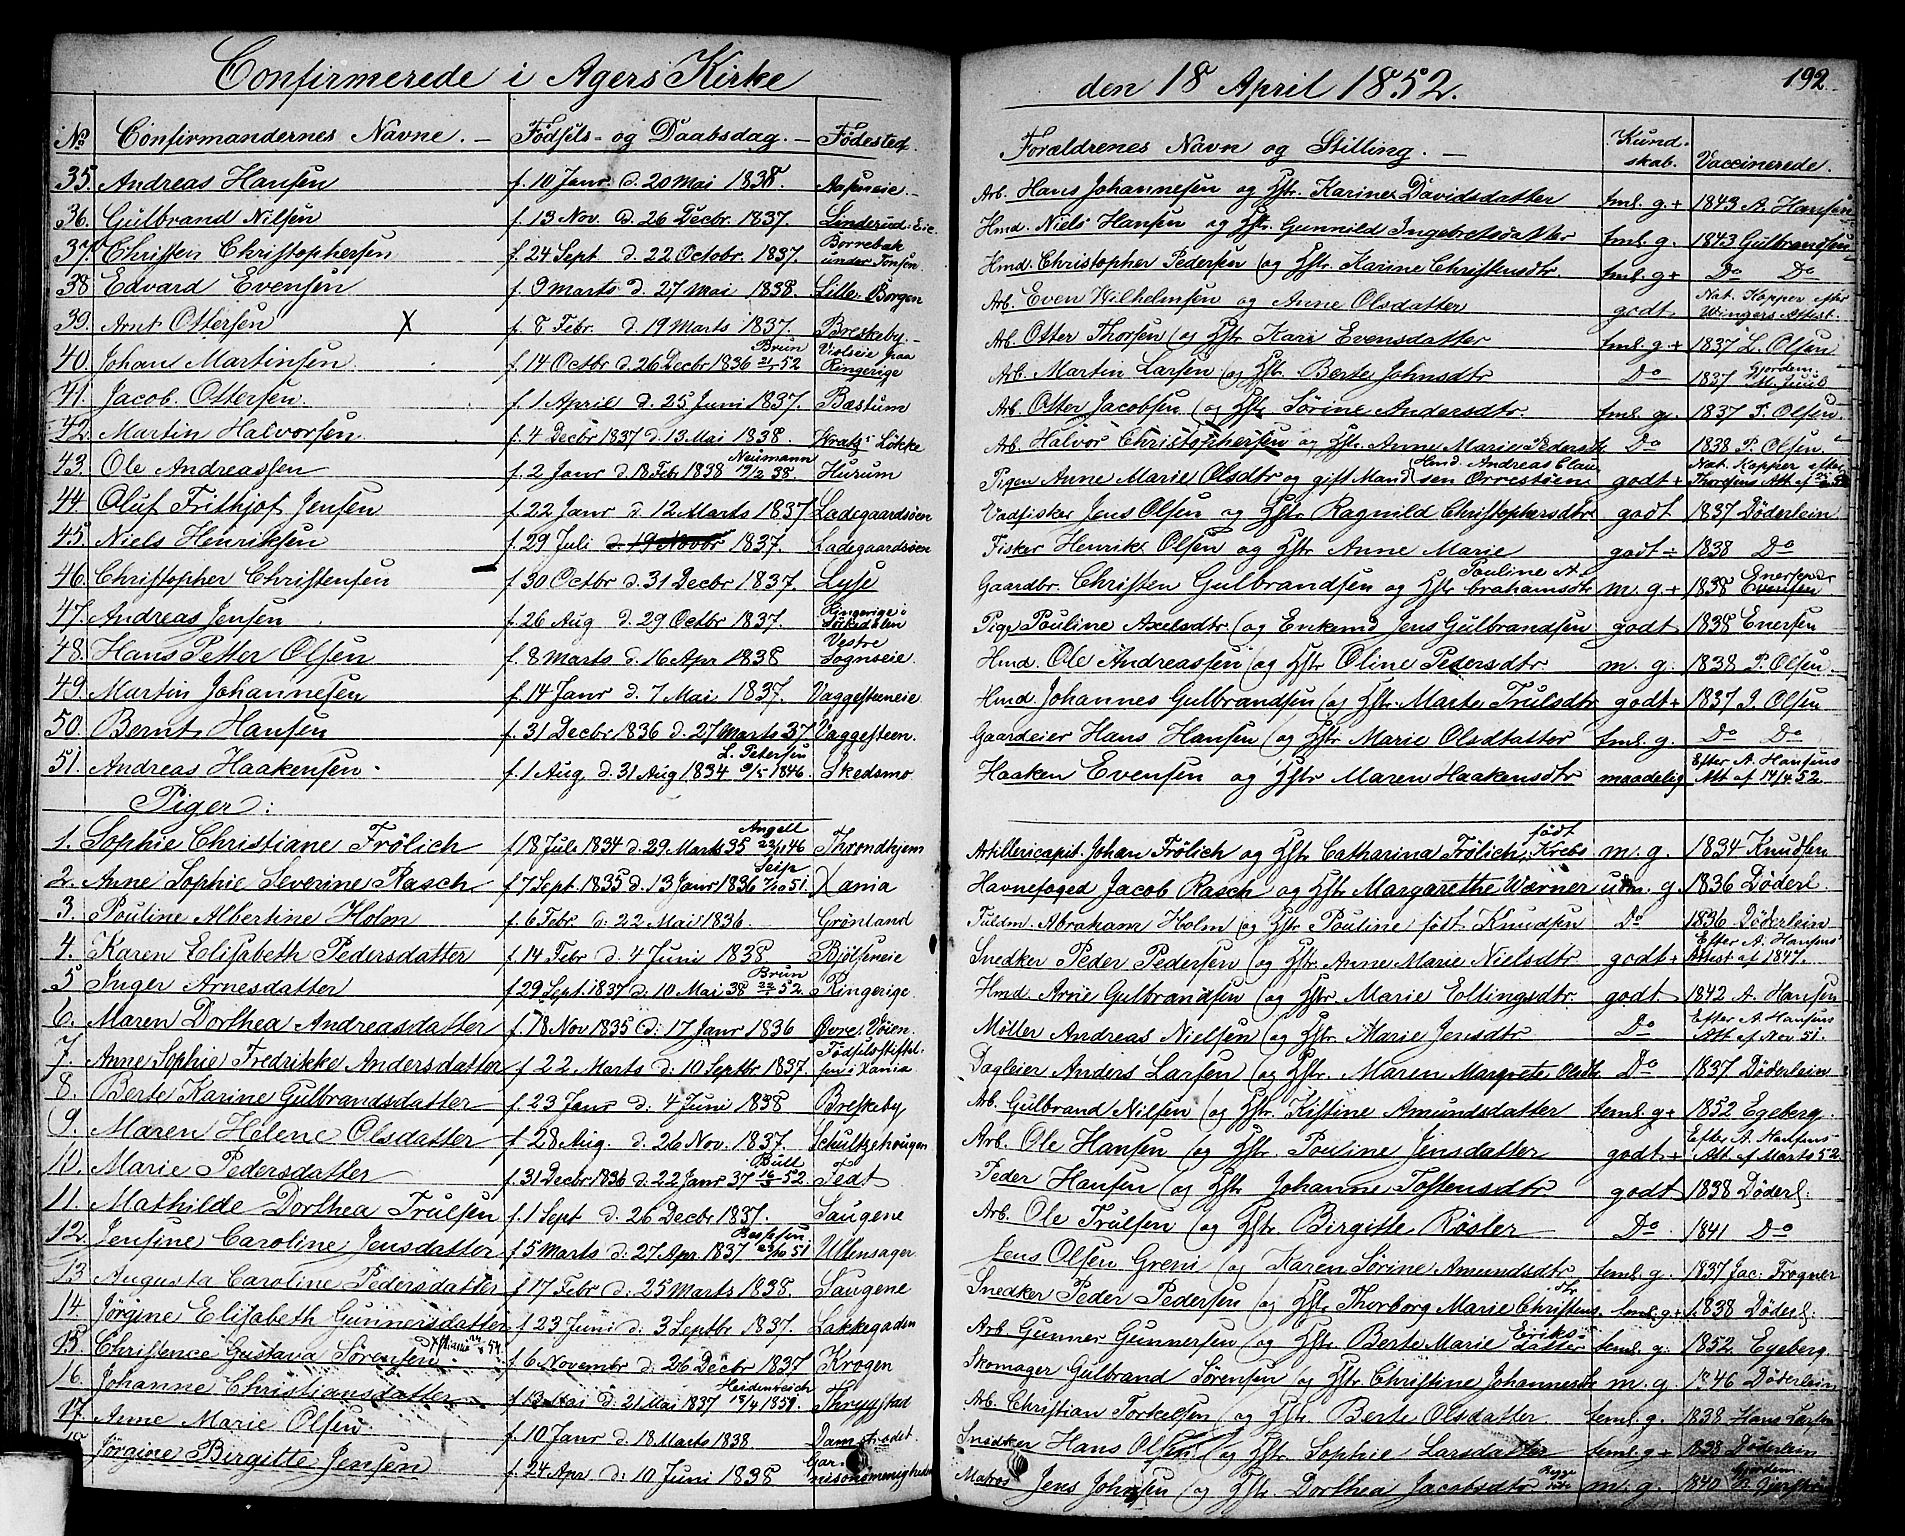 Confirmerede i Agers Kirke den 18 April 1852. 192
No Confirmandernes Navne. Fødsels- og Daabsdag. Fødested. Forældrenes Navn og Stilling. Kundskab. Vaccinerede.
35. Andreas Hansen f. 10 Janr d. 20 Mai 1838. Aasneie. Arb. Hans Johannesen og Hstr. Karine Davidsdatter tml. g.+ 1843 A. Hansen
36. Gulbrand Nilsen f. 13 Nov. d. 26 Decbr. 1837. Linderud-Eie. Hmd. Niels Hansen og Hstr Gunnild Ingebretsdatter tml. g. 1843 Gulbrandsen
37. Christen Christophersen f. 24 Sept d. 22 Octobr. 1837. Borrebak under Tonsen. Hmd. Christopher Pedersen og Hstr. Karine Christensdtr tml. g+ Do Do
38 Edvard Evensen f. 9 Marts d. 27 Mai 1838. Lille Borgen Arb. Even Wilhelmsen og Anne Olsdatter godt Nat. Kopper efter Wingers Attest.
39. Arnt Ottersen X f. 8 Febr. d. 19 Marts 1837. Breskeby. Arb. Otter Thorsen og Hstr Kari Evensdatter tml. g.+ 1837 L. Olsen
40. Johan Martinsen f. 14 Octbr d. 26 Decbr 1836 Brun 21/1 52 paa Ringerige Arb. Martin Larsen og Hstr. Berte Johnsdtr Do 1837 Gjordem. M. Juul
41. Jacob Ottersen. f. 1 April d. 25 Juni 1837. Bæstum Arb. Otter Jacobsen og Hstr Sørine Andersdtr. tml. g. 1837 P. Olsen
42. Martin Halvorsen f. 4 Decbr 1837 d. 13. Mai 1838. Kratz's Løkke Arb. Halvor Christophersen og Hstr. Anne Marie Pedersdtr Do 1838 P. Olsen
43. Ole Andreassen f. 2 Janr d. 18 Feb. 1838 Neumann 19/2 38. Hurum Pigen Anne Marie Olsdtr og gift Mand Hmd. Andreas Clausen Orrestøen godt + Nat. Kopper efter Thorsens Att. af
44. Oluf Frithjof Jensen f. 22 Janr d. 12 Marts 1837 Ladegaardsøen Vadfisker Jens Olsen og Hstr Ragnild Christophersdtr godt 1837 Døderlein
45. Niels Henriksen f. 29 Juli d. 19 Novbr 1837. Ladegaardsøen Fisker Henrik Olsen og Hstr Anne Marie godt ÷ 1838 Do
46. Christopher Christensen f. 30 Octbr d. 31 Decbr 1837. Lyse Gaardbr. Christen Gulbrandsen og Hstr Pauline Abrahamsdtr m. g.+ 1838 Enersen
47. Andreas Jensen f. 26 Aug d. 29 Octbr 1837. Ringerige i Sørkedalen Pige Pauline Axelsdtr. og Enkemd Jens Gulbrandsen godt 1838 Enersen
48. Hans Petter Olsen f. 8 Marts d. 16 Apr 1838 Vestre Sogneseie. Hmd. Ole Andreassen og Hstr Oline Pedersdtr. m. g. 1838 P. Olsen
49. Martin Johannesen f. 14 Janr d. 7 Mai 1837. Vaggesteeneie Hmd Johannes Gulbrandsen og Hstr. Marte Trulsdtr godt+ 1837 P. Olsen
50. Bernt Hansen f. 31 Decbr 1836 d. 27 Marts 37 Vaggesteen. Gaardeier Hans Hansen og Hstr Marie Olsdatter tml. g. Do Do
51. Andreas Haakensen f. 1 Aug d. 31 Aug 1834 L. Petersen 9/5 1846. Skedsmo Haaken Evensen og Hstr Maren Haakensdtr maadelig Efter A. Hansens Att. af 14/4 52.
Piger:
1. Sophie Christiane Frölich f. 18 Juli 1834 d. 29 Marts 35 Angell 46 Throndhjem Artillericapit. Johan Frölich og Hstr Catharina Frölich født Krebs m. g. 1834 Knudsen
2. Anne Sophie Severine Rasch f. 7 Sept. 1835 d. 13 Janr 1836 7/10 51. Xania Havnefoged Jacob Rasch og Hstr Margarethe Wærner udm. g 1836 Døderl.
3. Pauline Albertine Holm f. 6 Febr d. 22 Mai 1836. Grønland Fuldm. Abraham Holm og Hstr Pauline født Knudsen Do 1836 Døderlein
4. Karen Elisabeth Pedersdatter f. 14 Febr d. 4 Juni 1838 Bjølseneie Snedker Peder Pedersen og Hstr Anne Marie Nielsdtr godt + Efter A. Hansens Attest af 1847.
5 Inger Arnesdatter f. 29 Sept. 1837 d. 10 Mai 38 Brun 52. Ringerige Hmd. Arne Gulbrandsen og Hstr Marie Ellingsdtr. godt 1842 A. Hansen
6. Maren Dorthea Andreasdatter f. 18 Nov 1835 d: 17 Janr 1836 Øvre Døien. Møller Andreas Nielsen og Hstr Marie Jensdtr Do Efter A. Hansens Att. af Nov 51.
7. Anne Sophie Fredrikke Andersdatter f. 22 Marts d. 10 Septbr 1837. Fødselsstiftelsen i Xania Dagleier Anders Larsen og Hstr. Maren Margrete Olsdtr Do 1837 Døderlein
8. Berte Karine Gulbrandsdatter f. 23 Janr d: 4 Juni 1838 Breskeby Arb. Gulbrand Nilsen og Hstr Kistine Amundsdatter teml. g+ 1852 Egeberg.
9. Maren Helene Olsdatter f. 28 Aug. d: 26 Nov. 1837. Schultzehougen Arb. Ole Hansen og Hstr. Pauline Jensdatter godt + Efter A. Hansens Att. af Marts 52.
10. Marie Pedersdatter f. 31 Decbr 1836 d. 22 Janr 37 Bull 16/3 52. Fedt Peder Hansen og Hstr Johanne Tostensdtr godt 1838 Døderl:
11. Mathilde Dorthea Trulsen f. 1 Sept d: 26 Decbr 1837. Saugene Arb. Ole Trulsen og Hstr Birgitte Røsler Do 1841 Do
12. Jensine Caroline Jensdatter f. 5 Marts d: 27 Apr. 1837 51 Ullensager Jens Olsen Greni og Karen Sørine Amundsdtr teml. g. 1837 Jac: Trogner
13 Augusta Caroline Pedersdatter f. 17 Febr d: 25 Marts 1838. Saugene Snedker Peder Pedersen og Hstr Thorborg Marie Christensdtr. teml. g.+ 1838 Døderl:
14. Jørgine Elisabeth Gunnersdatter f. 23 Juni d: 3 Septbr 1837. Lakkegaden Arb. Gunner Gunnersen og Hstr Berte Marie Eriksdatter teml. g: 1852 Egeberg.
15. Christence Gustava Sørensen f. 6 Novembr d: 26 Decbr 1837 Krogen Skomager Gulbrand Sørensen og Hstr Christine Johannesdtr m. g. 1846 Døderlein
16. Johanne Christiansdatter f. 13 Mai d: 21 Mai 1837 Heidenreich 18/4 1851. Thrygstad Arb. Christian Torkelsen og Hstr Berte Olsdatter teml. g. 1838 Hans Larsen
17. Anne Marie Olsen f. 10 Janr d: 18 Marts 1838 Damstrædet Snedker Hans Olsen og Hstr Sophie Larsdatter teml. g + 1838 Døderlein
18. Jørgine Birgitte Jensen f. 24 Apr d: 10 Juni 1838 Garnisonsmenigheden Matros Jens Johnsen og Hstr. Dorthea Jacobsdtr m. g. 1840 Gjordem